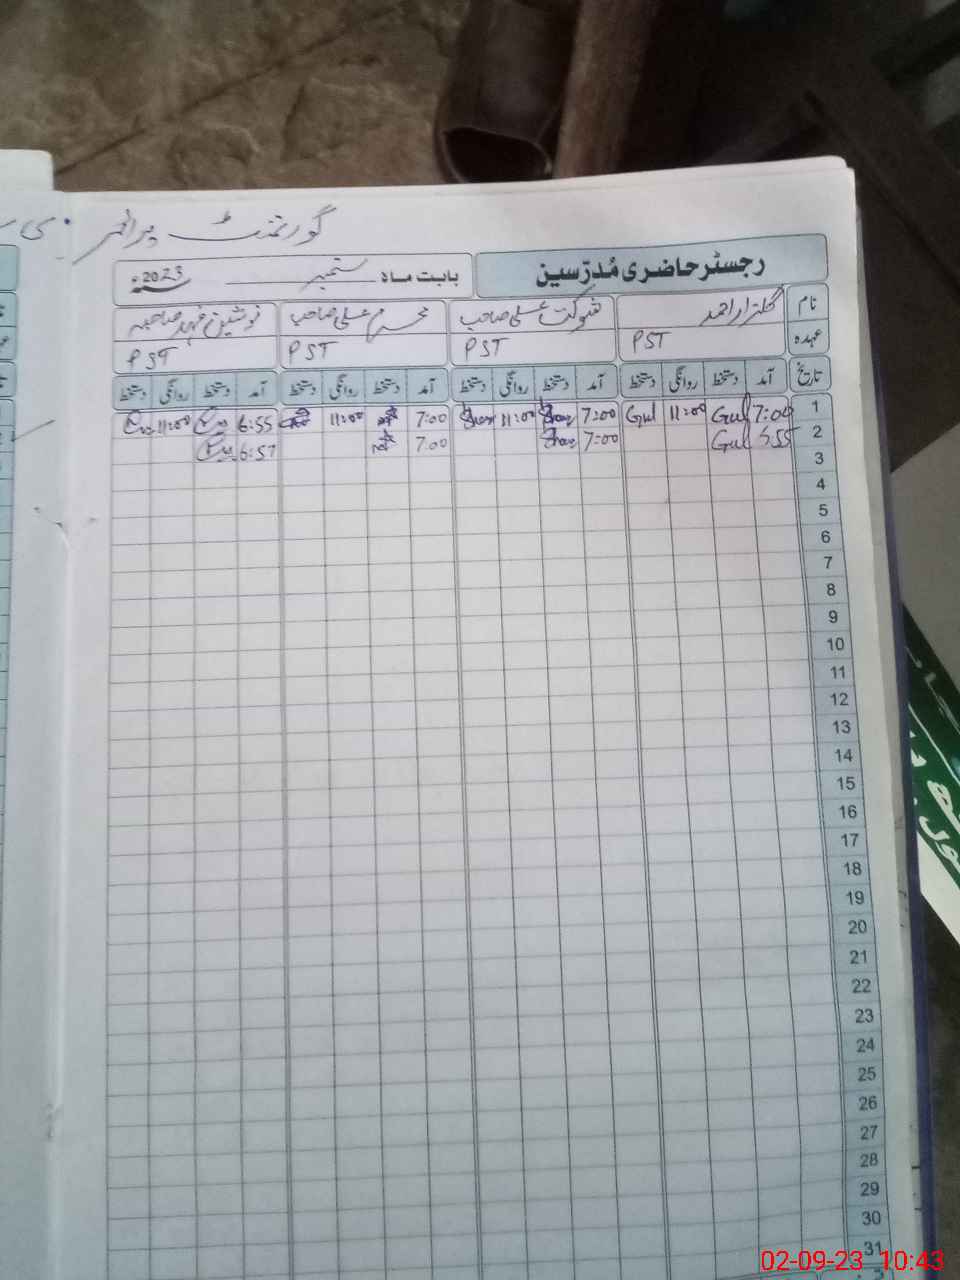 گورنمنٹ پرائمر
رجسٹر حاضری مُدرّسین
بابت ماہ ستمبر 2023ء
نام گلزار احمد شوکت علی صاحب محرم علی صاحب نوشین فہد صاحبہ
عہدہ PST PST PST PST
تاریخ آمد دستخط روانگی دستخط آمد دستخط روانگی دستخط آمد دستخط روانگی دستخط آمد دستخط روانگی دستخط
1 7:00 Gul 11:00 Gul 7:00 11:00 7:00 11:00 6:55 11:00
2 6:55 Gul 7:00 7:00 6:57
3
4
5
6
7
8
9
10
11
12
13
14
15
16
17
18
19
20
21
22
23
24
25
26
27
28
29
30
31
02-09-23 10:43